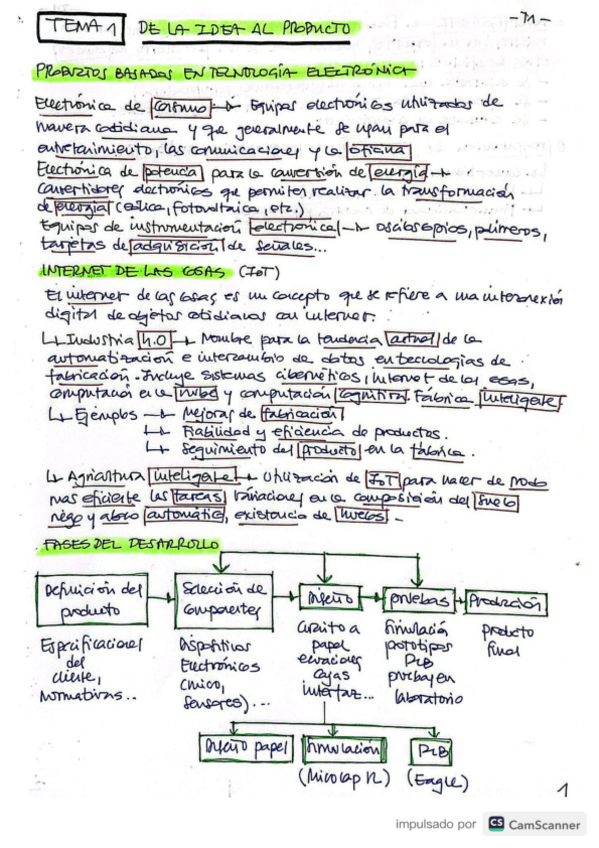 TEMA 1 DE LA IDEA AL PRODUCTO -T1-
PRODUCTOS BASADOS EN TECNOLOGÍA ELECTRÓNICA
Electrónica de consumo → Equipos electrónicos utilizados de
manera cotidiana y que generalmente se usan para el
entretenimiento, las comunicaciones y la oficina
Electrónica de potencia para la conversión de energía →
convertidores electrónicos que permiten realizar la transformación
de energía (eólica, fotovoltaica, etc.)
Equipos de instrumentación electrónica → osciloscopios, polímeros,
tarjetas de adquisición de señales...
INTERNET DE LAS COSAS (IoT)
El internet de las cosas es un concepto que se refiere a una interconexión
digital de objetos cotidianos con internet.
↳ Industria 4.0 → Nombre para la tendencia actual de la
automatización e intercambio de datos en tecnologías de
fabricación. Incluye sistemas cibernéticos, internet de las cosas,
computación en la nube y computación cognitiva. Fábrica inteligente
↳ Ejemplos → Mejoras de fabricación
↳ Fiabilidad y eficiencia de productos.
↳ Seguimiento del producto en la fábrica.
↳ Agricultura inteligente → Utilización de IoT para hacer de modo
más eficiente las tareas. Variaciones en la composición del suelo
riego y abono automático, existencia de huevos -
FASES DEL DESARROLLO
Definición del producto → Selección de componentes → Diseño → pruebas → Producción
Especificaciones del cliente, normativas..
Dispositivos Electrónicos (micro, sensores)...
Circuito a papel ecuaciones cajas interfaz...
Simulación prototipos PCB pruebas en laboratorio
producto final
Diseño papel Simulación PCB
(Microcap 12) (Eagle)
1
impulsado por CS CamScanner